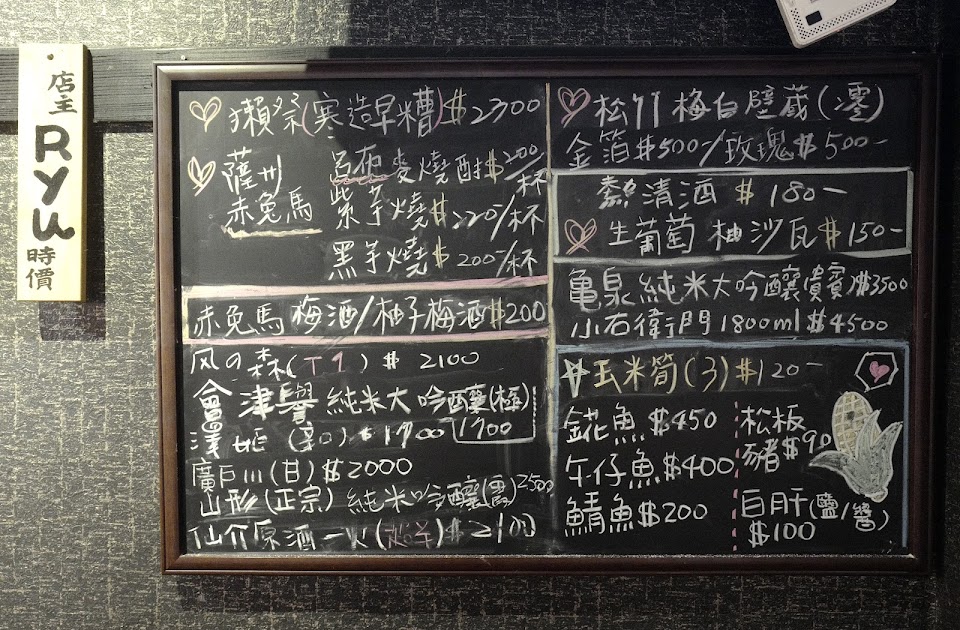 店主
Ryu
時價
獺祭(寒造早糟)$2300
薩州
赤兔馬
呂布麥燒酎$200/杯
紫芋燒$220/杯
黑芋燒$200/杯
赤兔馬梅酒/柚子梅酒$200
风の森( ) $2100
會津譽純米大吟釀(極)
1700
(辛口)$1900
廣戶川(甘)$2000
山形(正宗)純米吟釀 2500
仙介原酒一火 $2100
松竹梅白壁蔵(澪)
金箔$500-/玫瑰$500-
熱清酒 $180-
生葡萄柚沙瓦$150-
亀泉純米大吟釀貴賓 $3500
小右衛門1800ml $4500
玉米筍(3)$120-
魚$450
午仔魚$400
鯖魚$200
松板
豬$90
白肝(鹽/醬)
$100